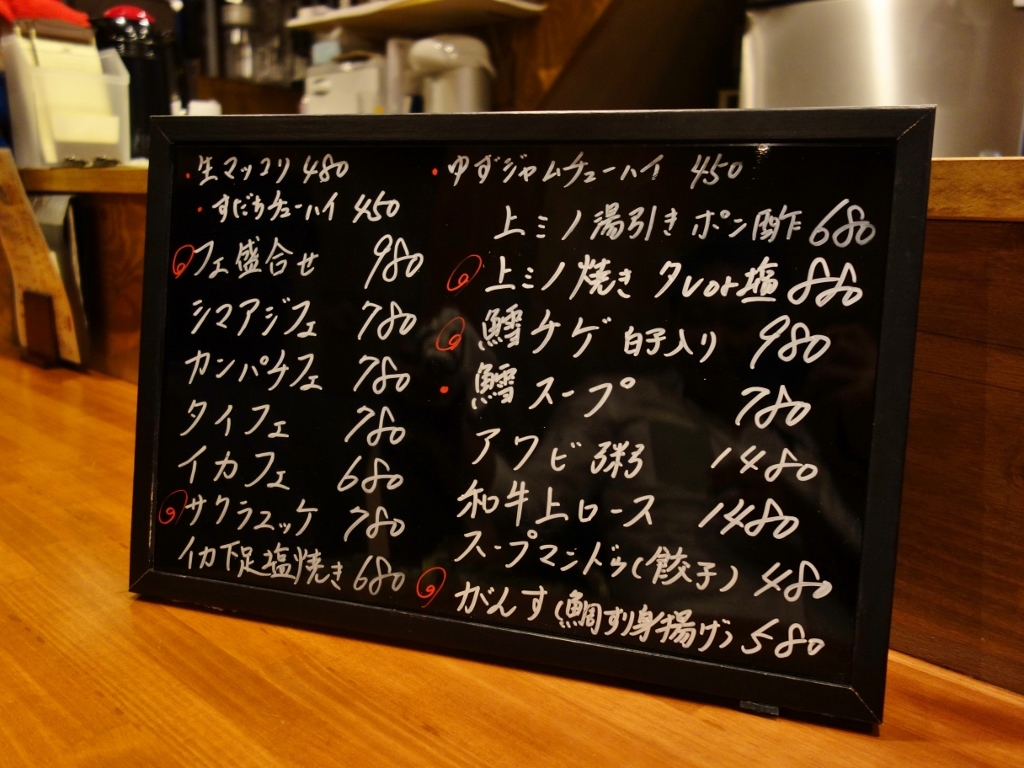 ・生マッコリ 480
・すだちチューハイ 450
フェ盛合せ 980
シマアジフェ 780
カンパチフェ 780
タイフェ 780
イカフェ 680
サクラユッケ 780
イカ下足塩焼き 680
・ゆずジャムチューハイ 450
上ミノ湯引きポン酢 680
上ミノ焼き タレor塩 880
鱈チゲ 白子入り 980
・鱈スープ 780
アワビ粥 1480
和牛上ロース 1480
スープマンドゥ(餃子) 480
がんす(鯛すり身揚げ) 580